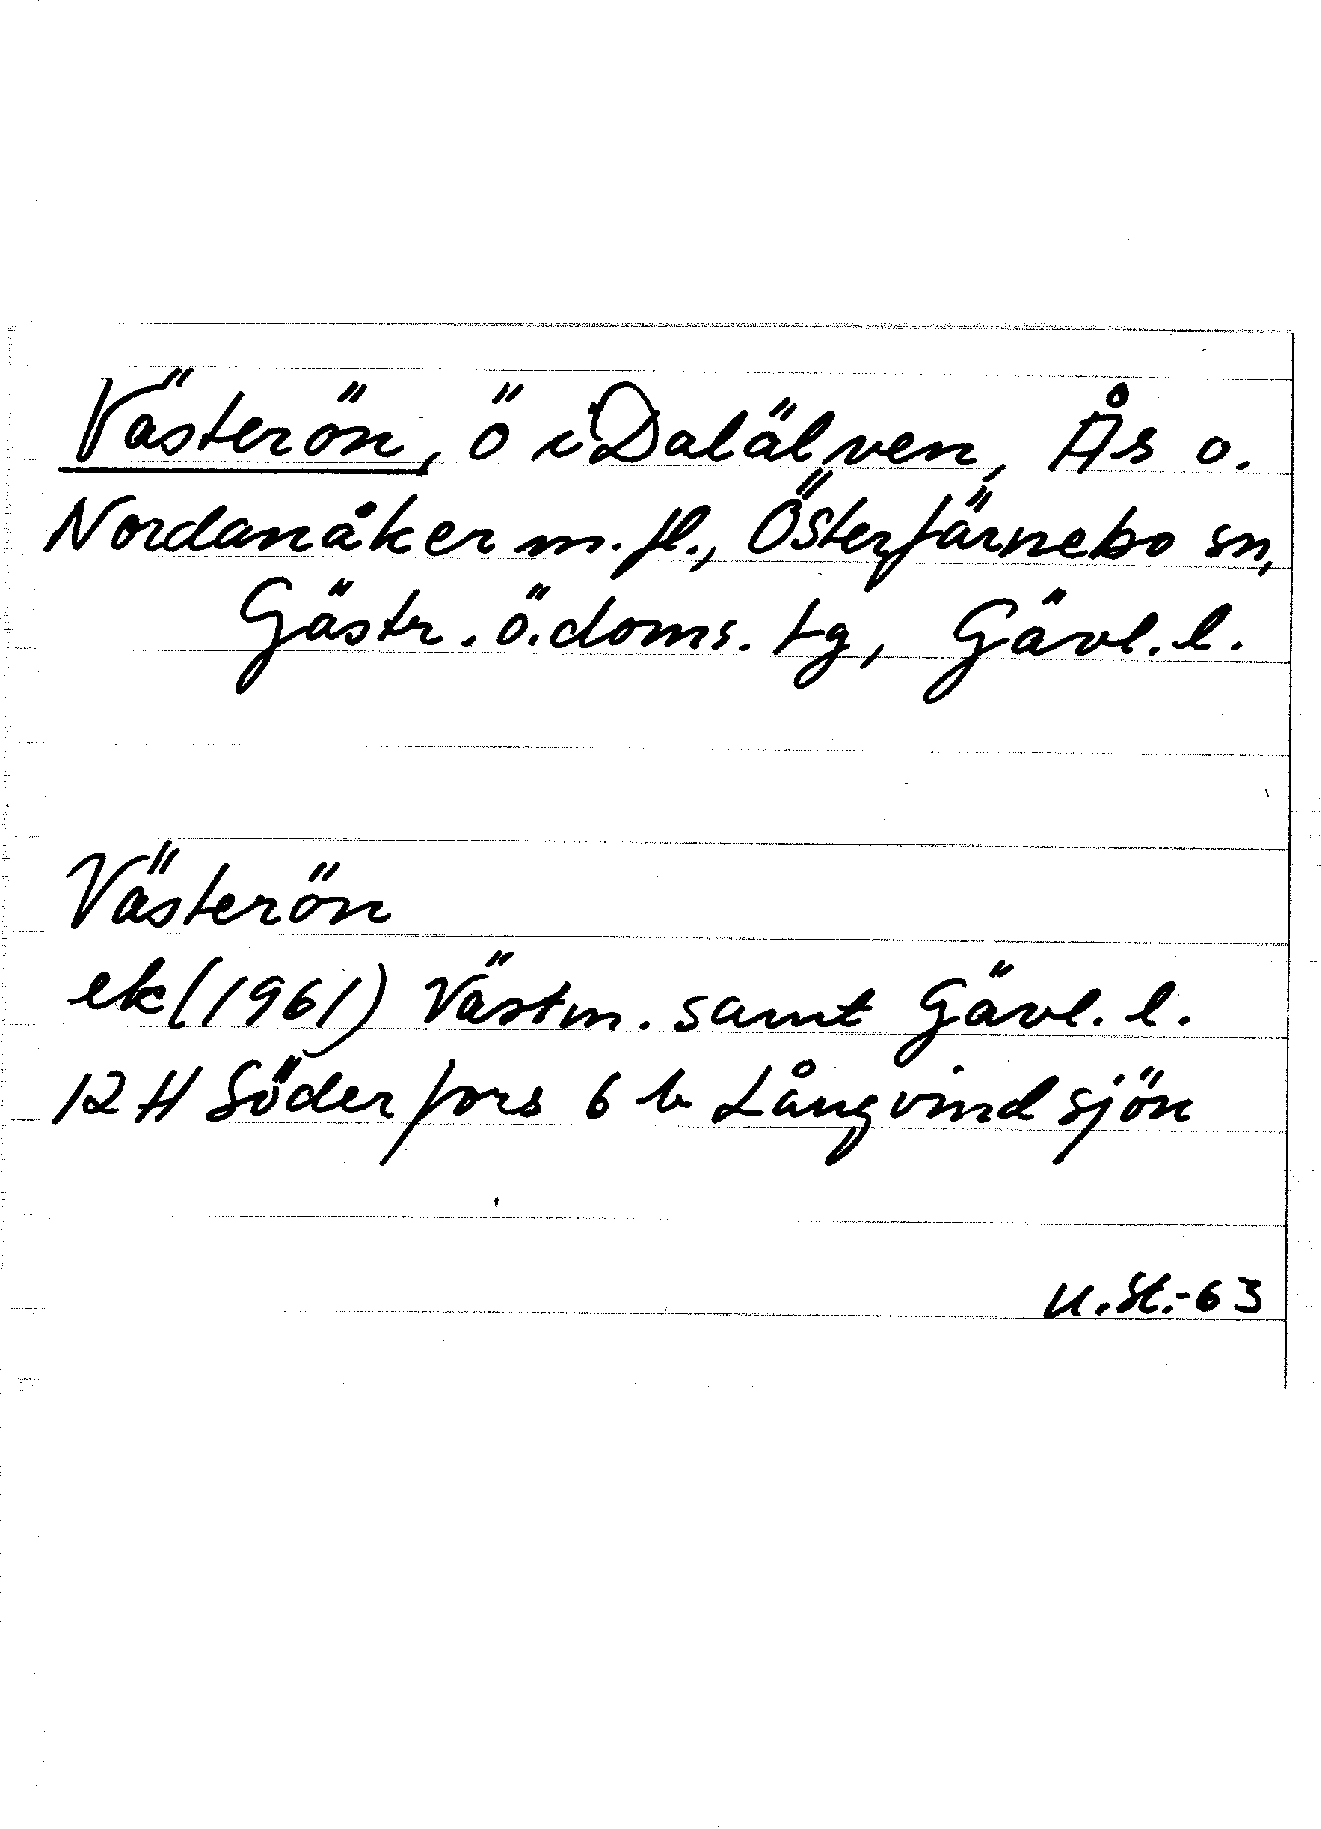 Västerön, ö i Dalälven, Ås o.
Nordanåker m.fl., Österfärnebo sn,
Gästr. ö. doms. tg, Gävl. l.
Västerön
ek (1961) Västm. samt Gävl. l.
12 H Söderfors 6 b Långvindsjön
U. St.-63